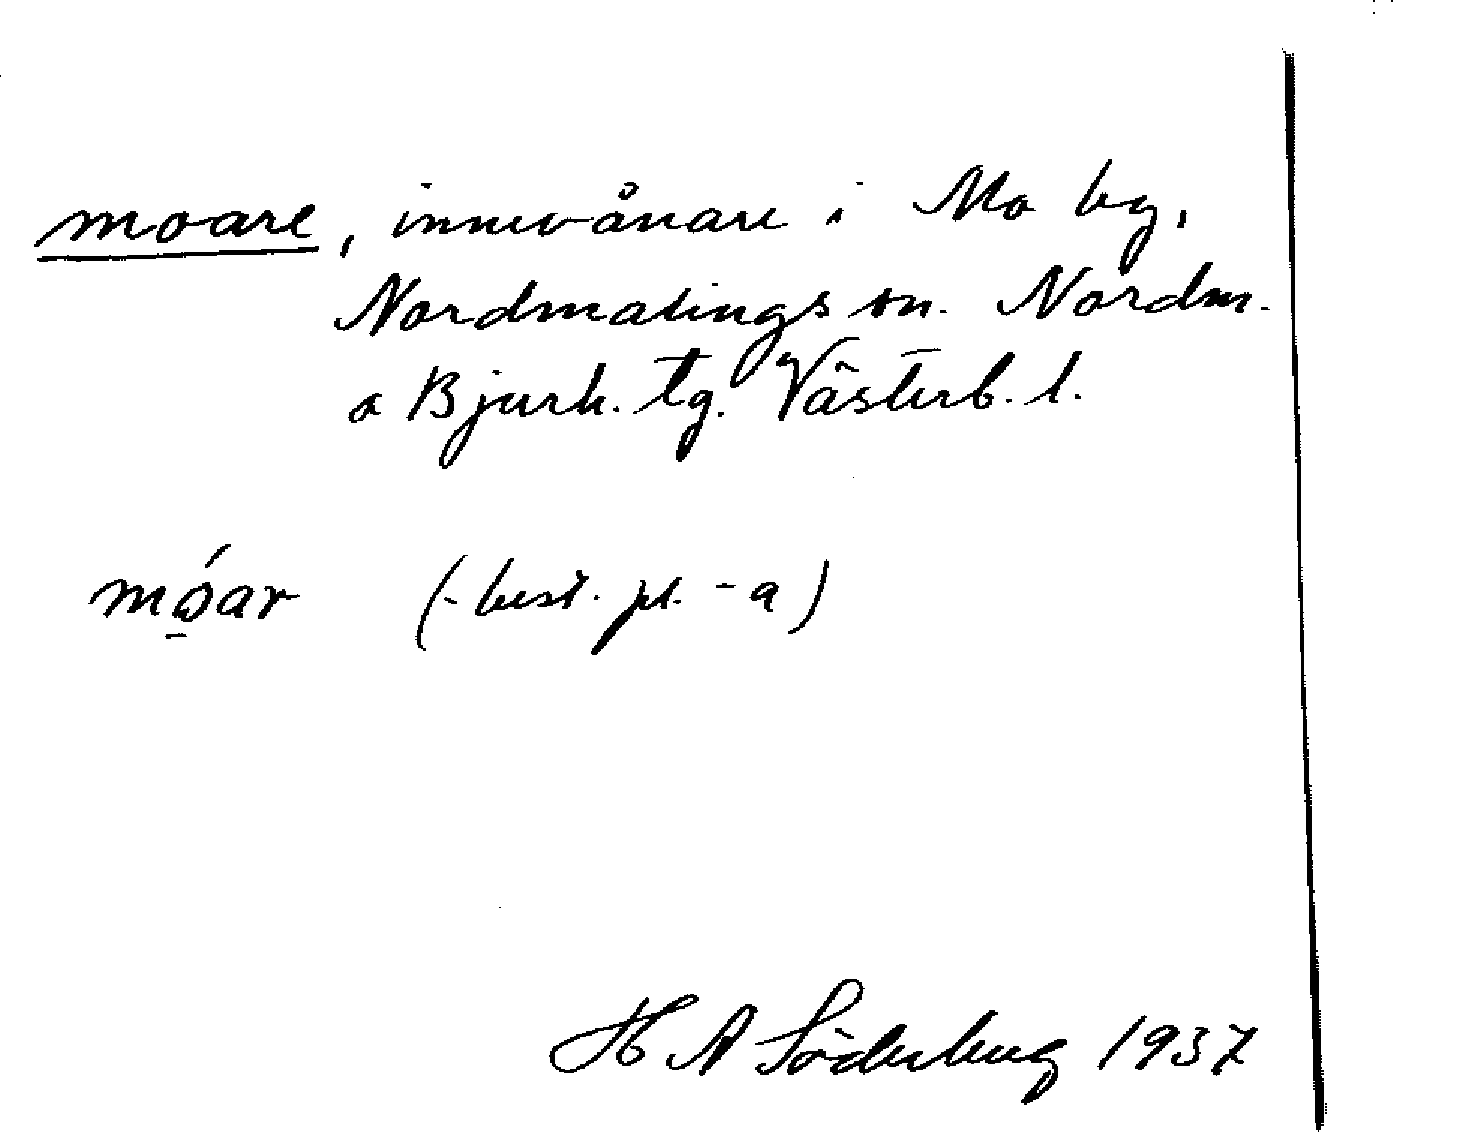 moare, innevånare i Mo by,
Nordmalings sn. Nordm.
o Bjurh. tg. Västerb. l.
mó̱ar (- best. pl. - a)
H A Söderberg 1937